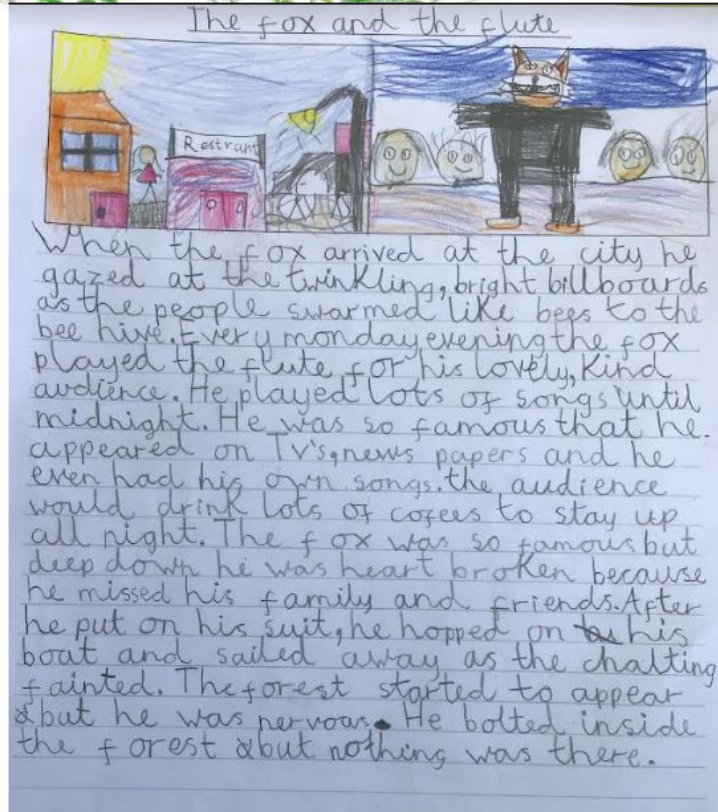 The fox and the flute
Restrant
When the fox arrived at the city he
gazed at the twinkling, bright billboards
as the people swarmed like bees to the
bee hive. Every monday evening the fox
played the flute for his lovely, kind
audience. He played lots of songs until
midnight. He was so famous that he.
appeared on TV's, news papers and he
even had his own songs. the audience
would drink lots of cofees to stay up
all night. The fox was so famous but
deep down he was heart broken because
he missed his family and friends. After
he put on his suit, he hopped on his
boat and sailed away as the chatting
fainted. The forest started to appear
but he was nervous. He bolted inside
the forest but nothing was there.